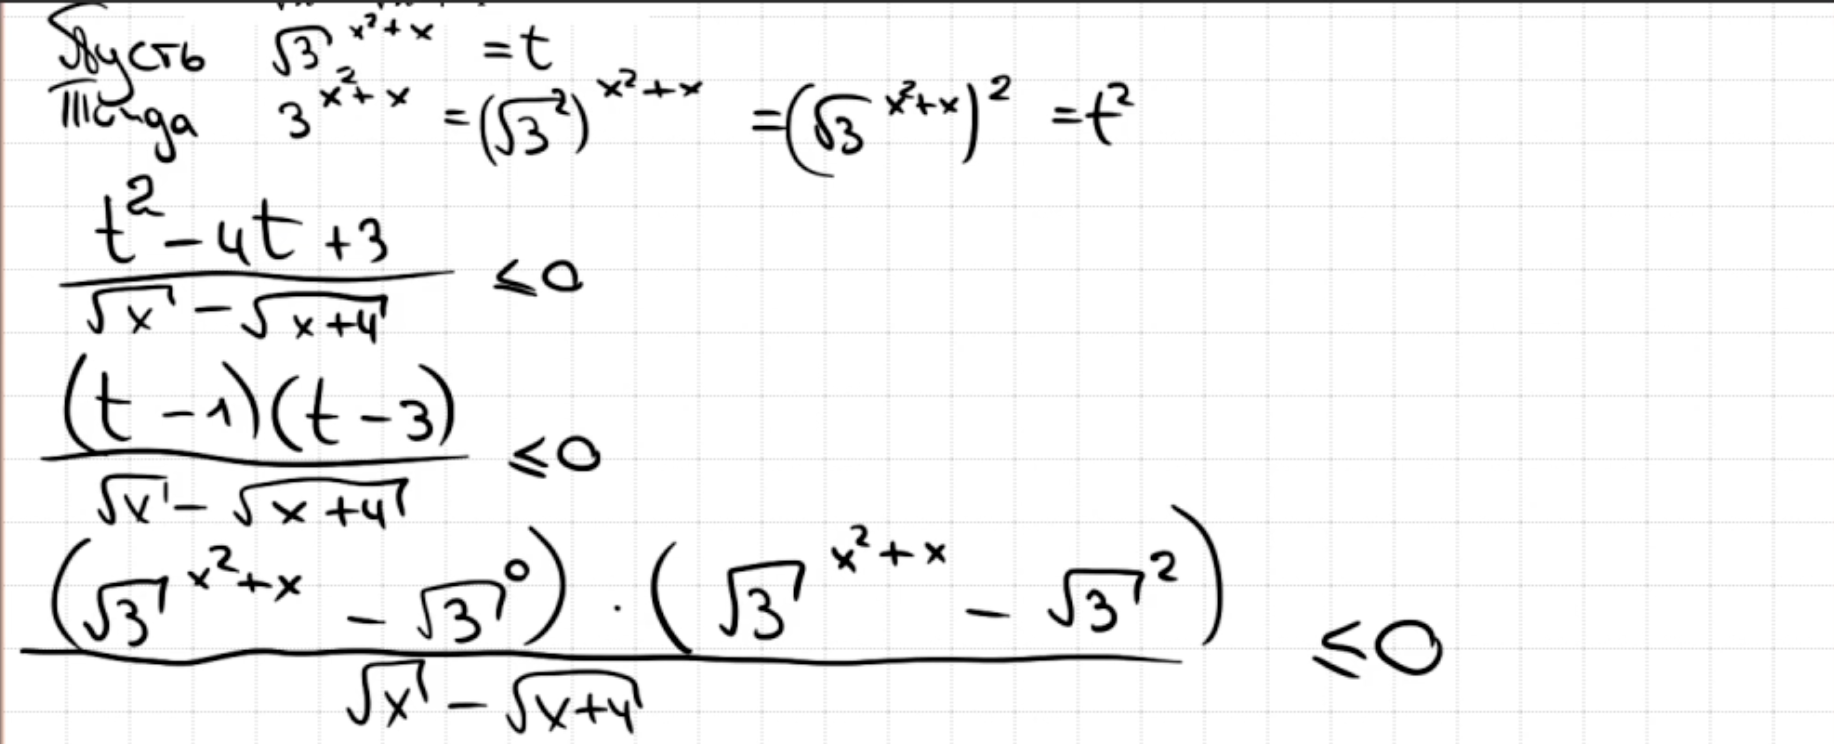 Пусть √3^(x²+x) = t
Тогда 3^(x²+x) = (√3²)^(x²+x) = (√3^(x²+x))² = t²
(t² - 4t + 3)/(√x - √(x+4)) ≤ 0
((t - 1)(t - 3))/(√x - √(x+4)) ≤ 0
((√3^(x²+x) - √3⁰) · (√3^(x²+x) - √3²))/(√x - √(x+4)) ≤ 0